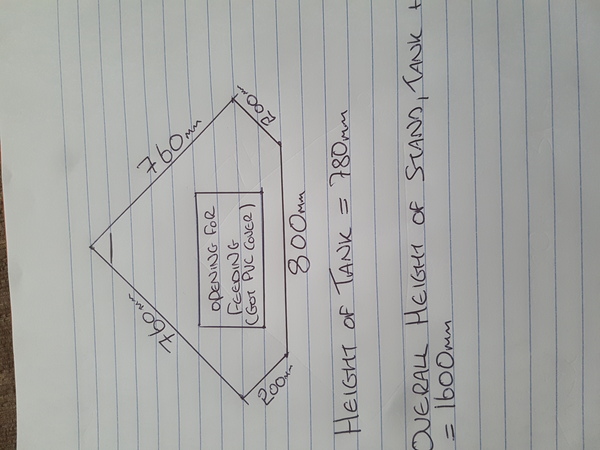 760mm
760mm
200mm
200mm
OPENING FOR
FEEDING
(GOT PVC COVER)
800mm
HEIGHT OF TANK = 780mm
OVERALL HEIGHT OF STAND, TANK +
= 1600mm